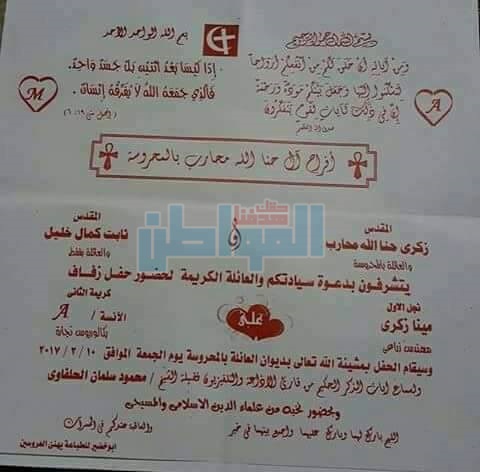 بسم الله الرحمن الرحيم
ومن آياته أن خلق لكم من أنفسكم أزواجا
لتسكنوا إليها وجعل بينكم مودة ورحمة
إن في ذلك لآيات لقوم يتفكرون
صدق الله العظيم
A
بسم الله الواحد الأحد
إذا ليسا بعد اثنين بل جسد واحد
فالذي جمعه الله لا يفرقه إنسان
M
أفراح آل حنا الله محارب بالمحروسة
المواطن
المقدس
زكرى حنا الله محارب
والعائلة بالمحروسة
و
المقدس
ثابت كمال خليل
والعائلة بقفط
يتشرفون بدعوة سيادتكم والعائلة الكريمة لحضور حفل زفاف
نجل الاول
مينا زكرى
مهندس زراعي
على
كريمة الثانى
الآنسة / A
بكالوريوس تجارة
وسيقام الحفل بمشيئة الله تعالى بديوان العائلة بالمحروسة يوم الجمعة الموافق ١٠ / ٢ / ٢٠١٧
ولسماع آيات الذكر الحكيم من قارئ الاذاعة والتليفزيون فضيلة الشيخ / محمود سلمان الحلفاوى
وبحضور نخبة من علماء الدين الاسلامى والمسيحى
اللهم بارك لهما وبارك عليهما واجمع بينهما في خير
والعاقبة عندكم في المسرات
ابوخضير للطباعة يهنئ العروسين